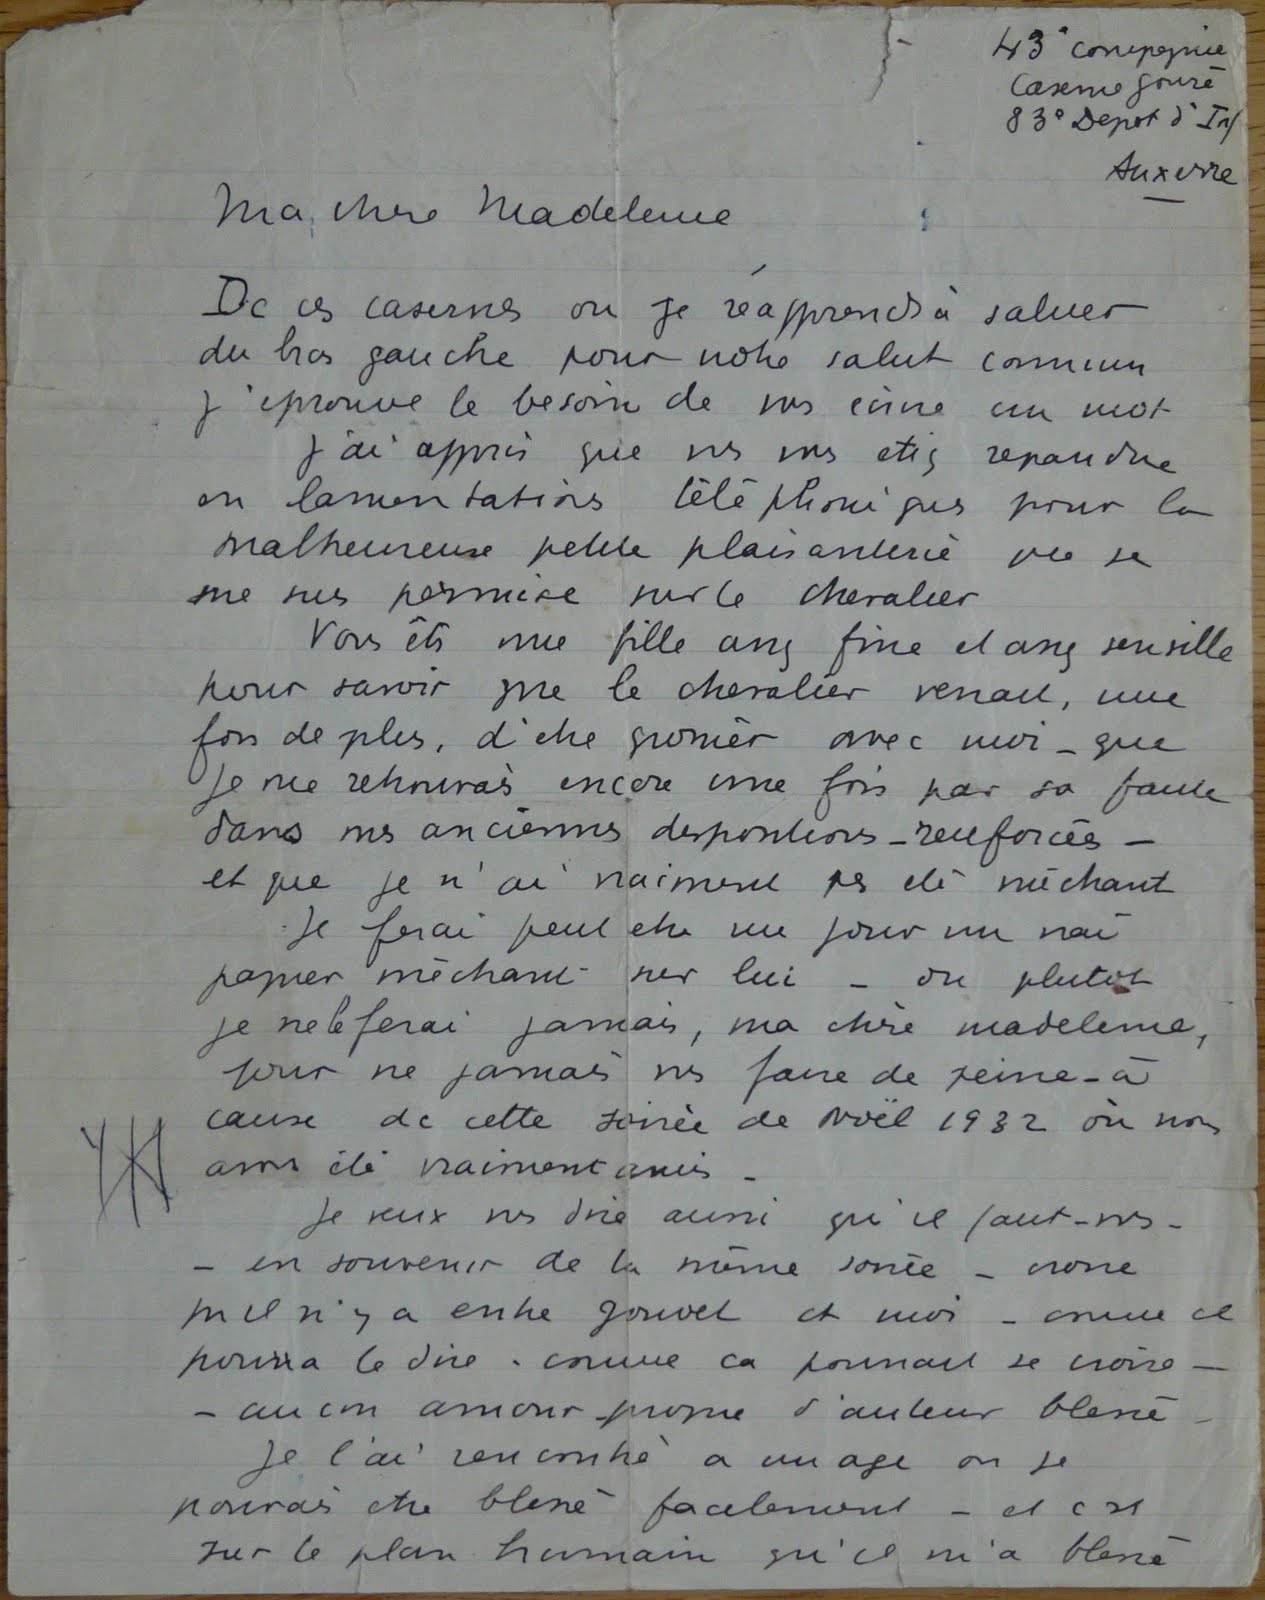 43° compagnie
Caserne Gouré
83° Depot d'Inf
Auxerre
Ma chere Madeleine
De ces casernes ou je réapprends à saluer
du bras gauche pour notre salut commun
j'eprouve le besoin de vous ecrire un mot
J'ai appris que vous vous etiez repandue
en lamentations téléphoniques pour la
malheureuse petite plaisanterie que je
me suis permise sur le chevalier
Vous êtes une fille assez fine et assez sensible
pour savoir que le chevalier venait, une
fois de plus, d'etre grossier avec moi - que
je me retrouvais encore une fois par sa faute
dans mes anciennes dispositions - renforcées -
et que je n'ai vraiment pas eté méchant
Je ferai peut etre un jour un vrai
papier méchant sur lui - ou plutot
je ne le ferai jamais, ma chère madeleine,
pour ne jamais vous faire de peine - à
cause de cette soirée de Noël 1932 où nous
avons été vraiment amis -
Je veux vous dire aussi qu'il faut - vous -
- en souvenir de la même soirée - croire
qu'il n'y a entre Jouvet et moi - comme il
pourra le dire - comme ca pourrait se croire -
- aucun amour-propre d'auteur blessé -
Je l'ai rencontré a un age ou je
pouvais etre blessé facilement - et c'est
sur le plan humain qu'il m'a blessé